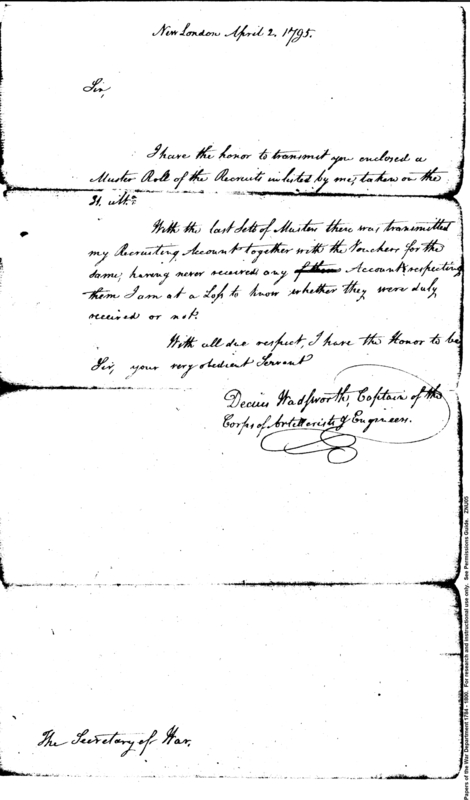 New London April 2. 1795.
Sir,
I have the honor to transmit you enclosed a
Muster Roll of the Recruits inlisted by me, taken on the
31. ulto.
With the last Sets of Musters there was transmitted
my Recruiting Account together with the Vouchers for the
same; having never received any of them Account respecting
them I am at a Loss to know whether they were duly
received or not.
With all due respect, I have the Honor to be
Sir, your very obedient Servant
Decius Wadsworth, Captain of the
Corps of Artillerists & Engineers.
The Secretary of War.
Papers of the War Department 1784 - 1800. For research and instructional use only. See Permissions Guide. ZNU05